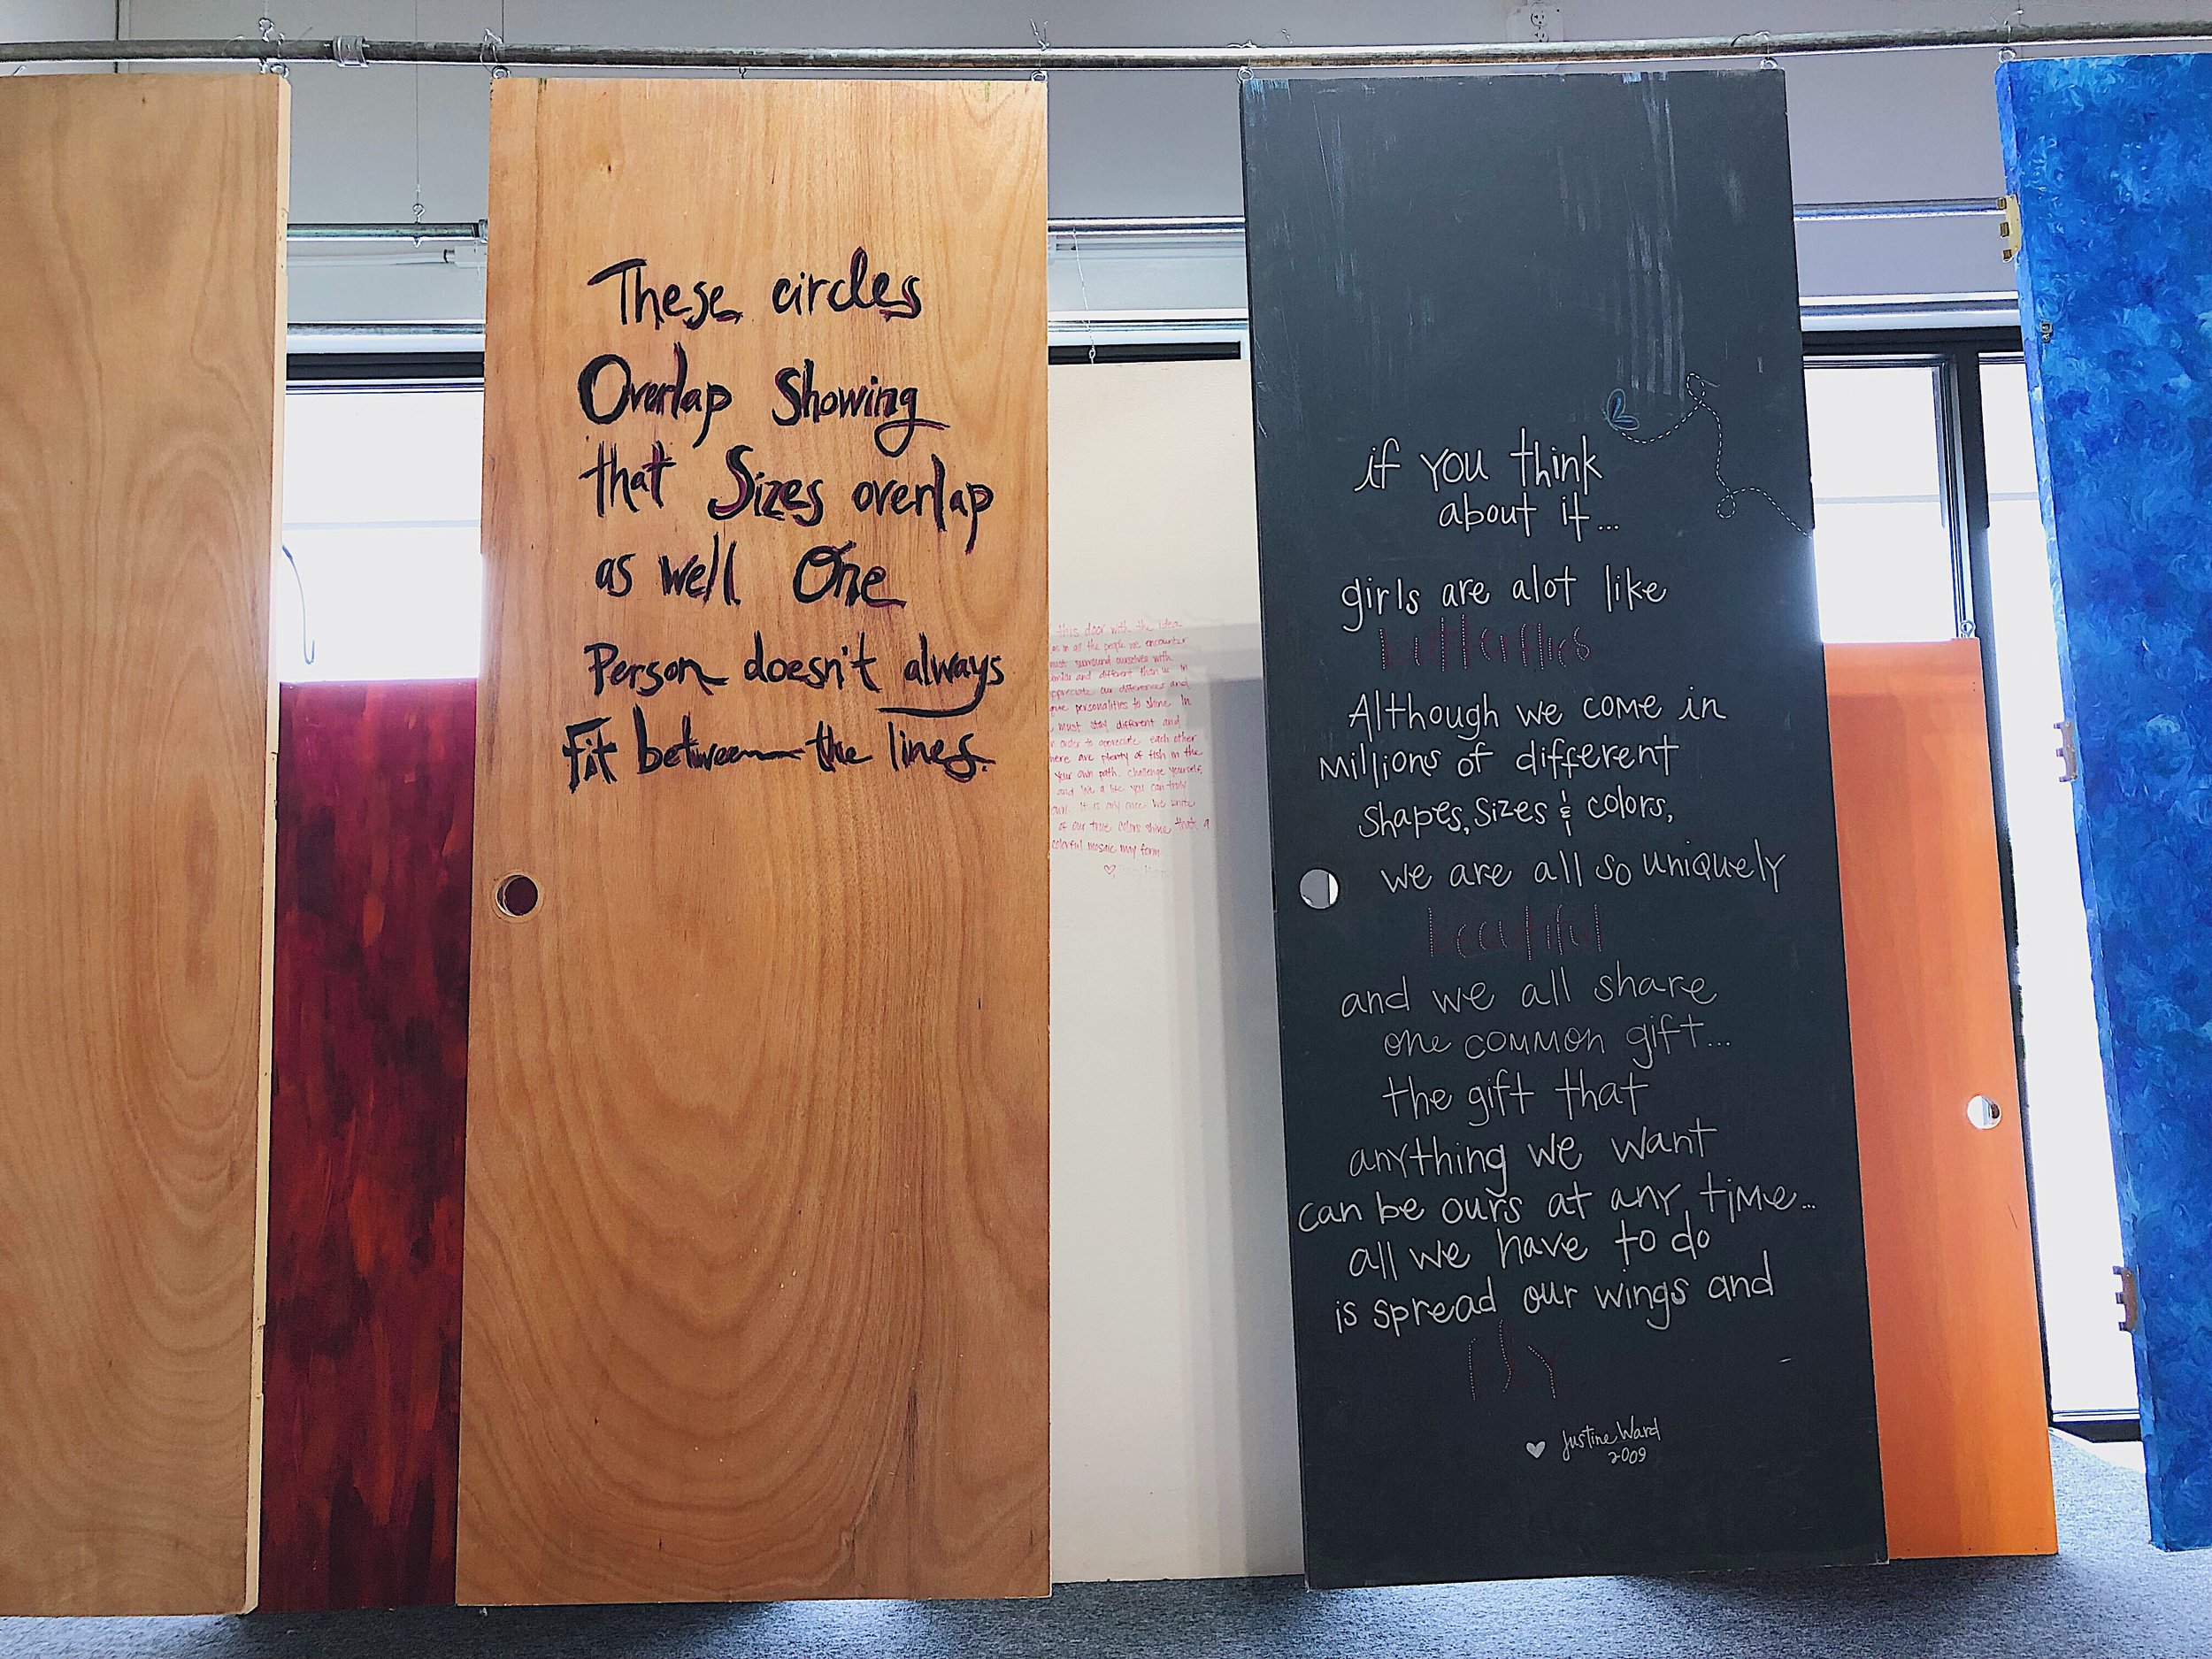 These circles
Overlap Showing
that Sizes overlap
as well. One
Person doesn't always
Fit between the lines.
this door with the idea
as in all the people we encounter
must surround ourselves with
similar and different than us. In
appreciate our differences and
personalities to shine. In
must stay different and
in order to appreciate each other
here are plenty of fish in the
your own path. Challenge yourself,
and live a life you can truly
own. It is only once we unite
of our true colors shine that a
colorful mosaic may form.
if you think
about it...
girls are alot like
butterflies
Although we come in
millions of different
shapes, sizes & colors,
we are all so uniquely
beautiful
and we all share
one common gift...
the gift that
anything we want
can be ours at any time...
all we have to do
is spread our wings and
fly
Justine Ward
2009